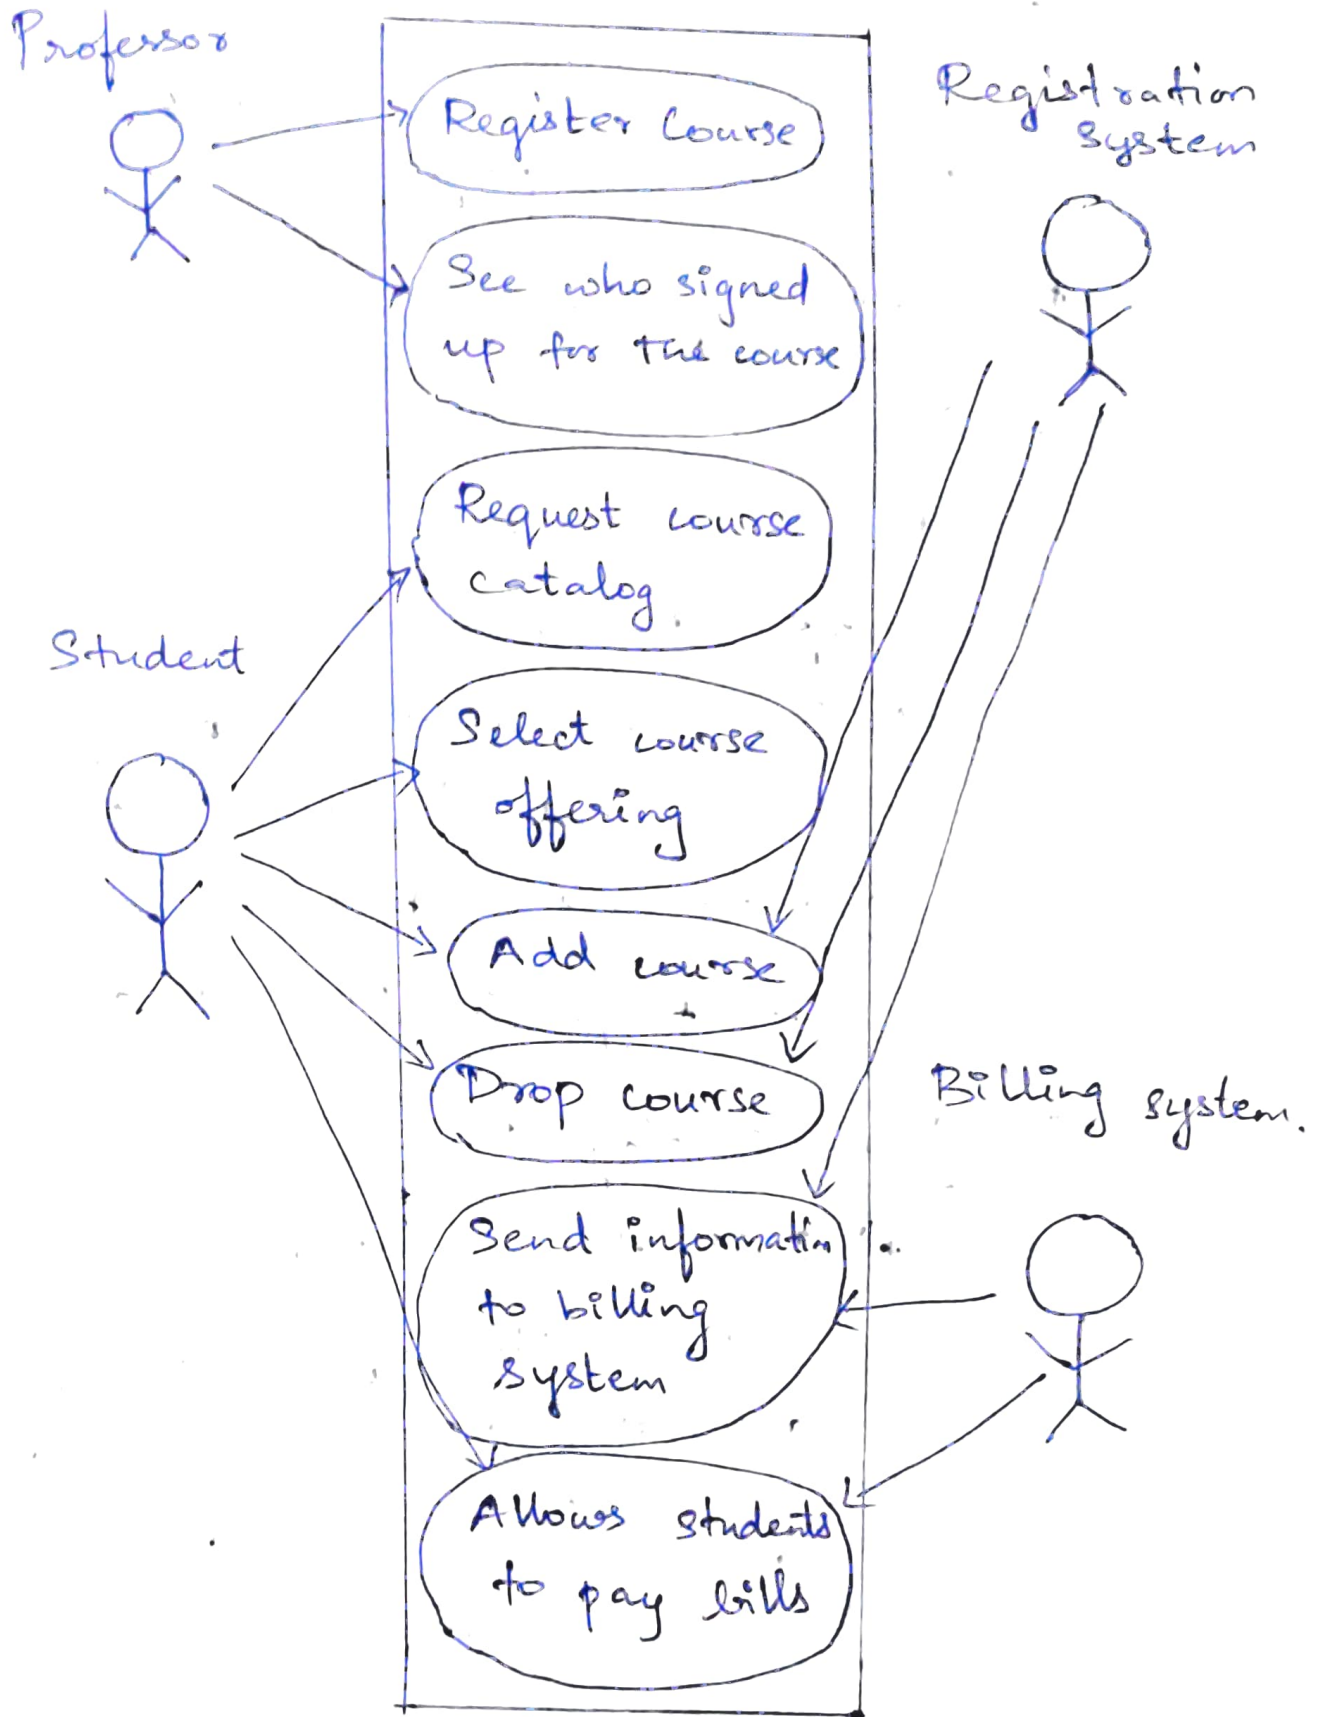 Professor
Register Course
Registration
system
See who signed
up for the course
Request course
catalog
Student
Select course
offering
Add course
Drop course
Billing system.
Send information
to billing
system
Allows students
to pay bills